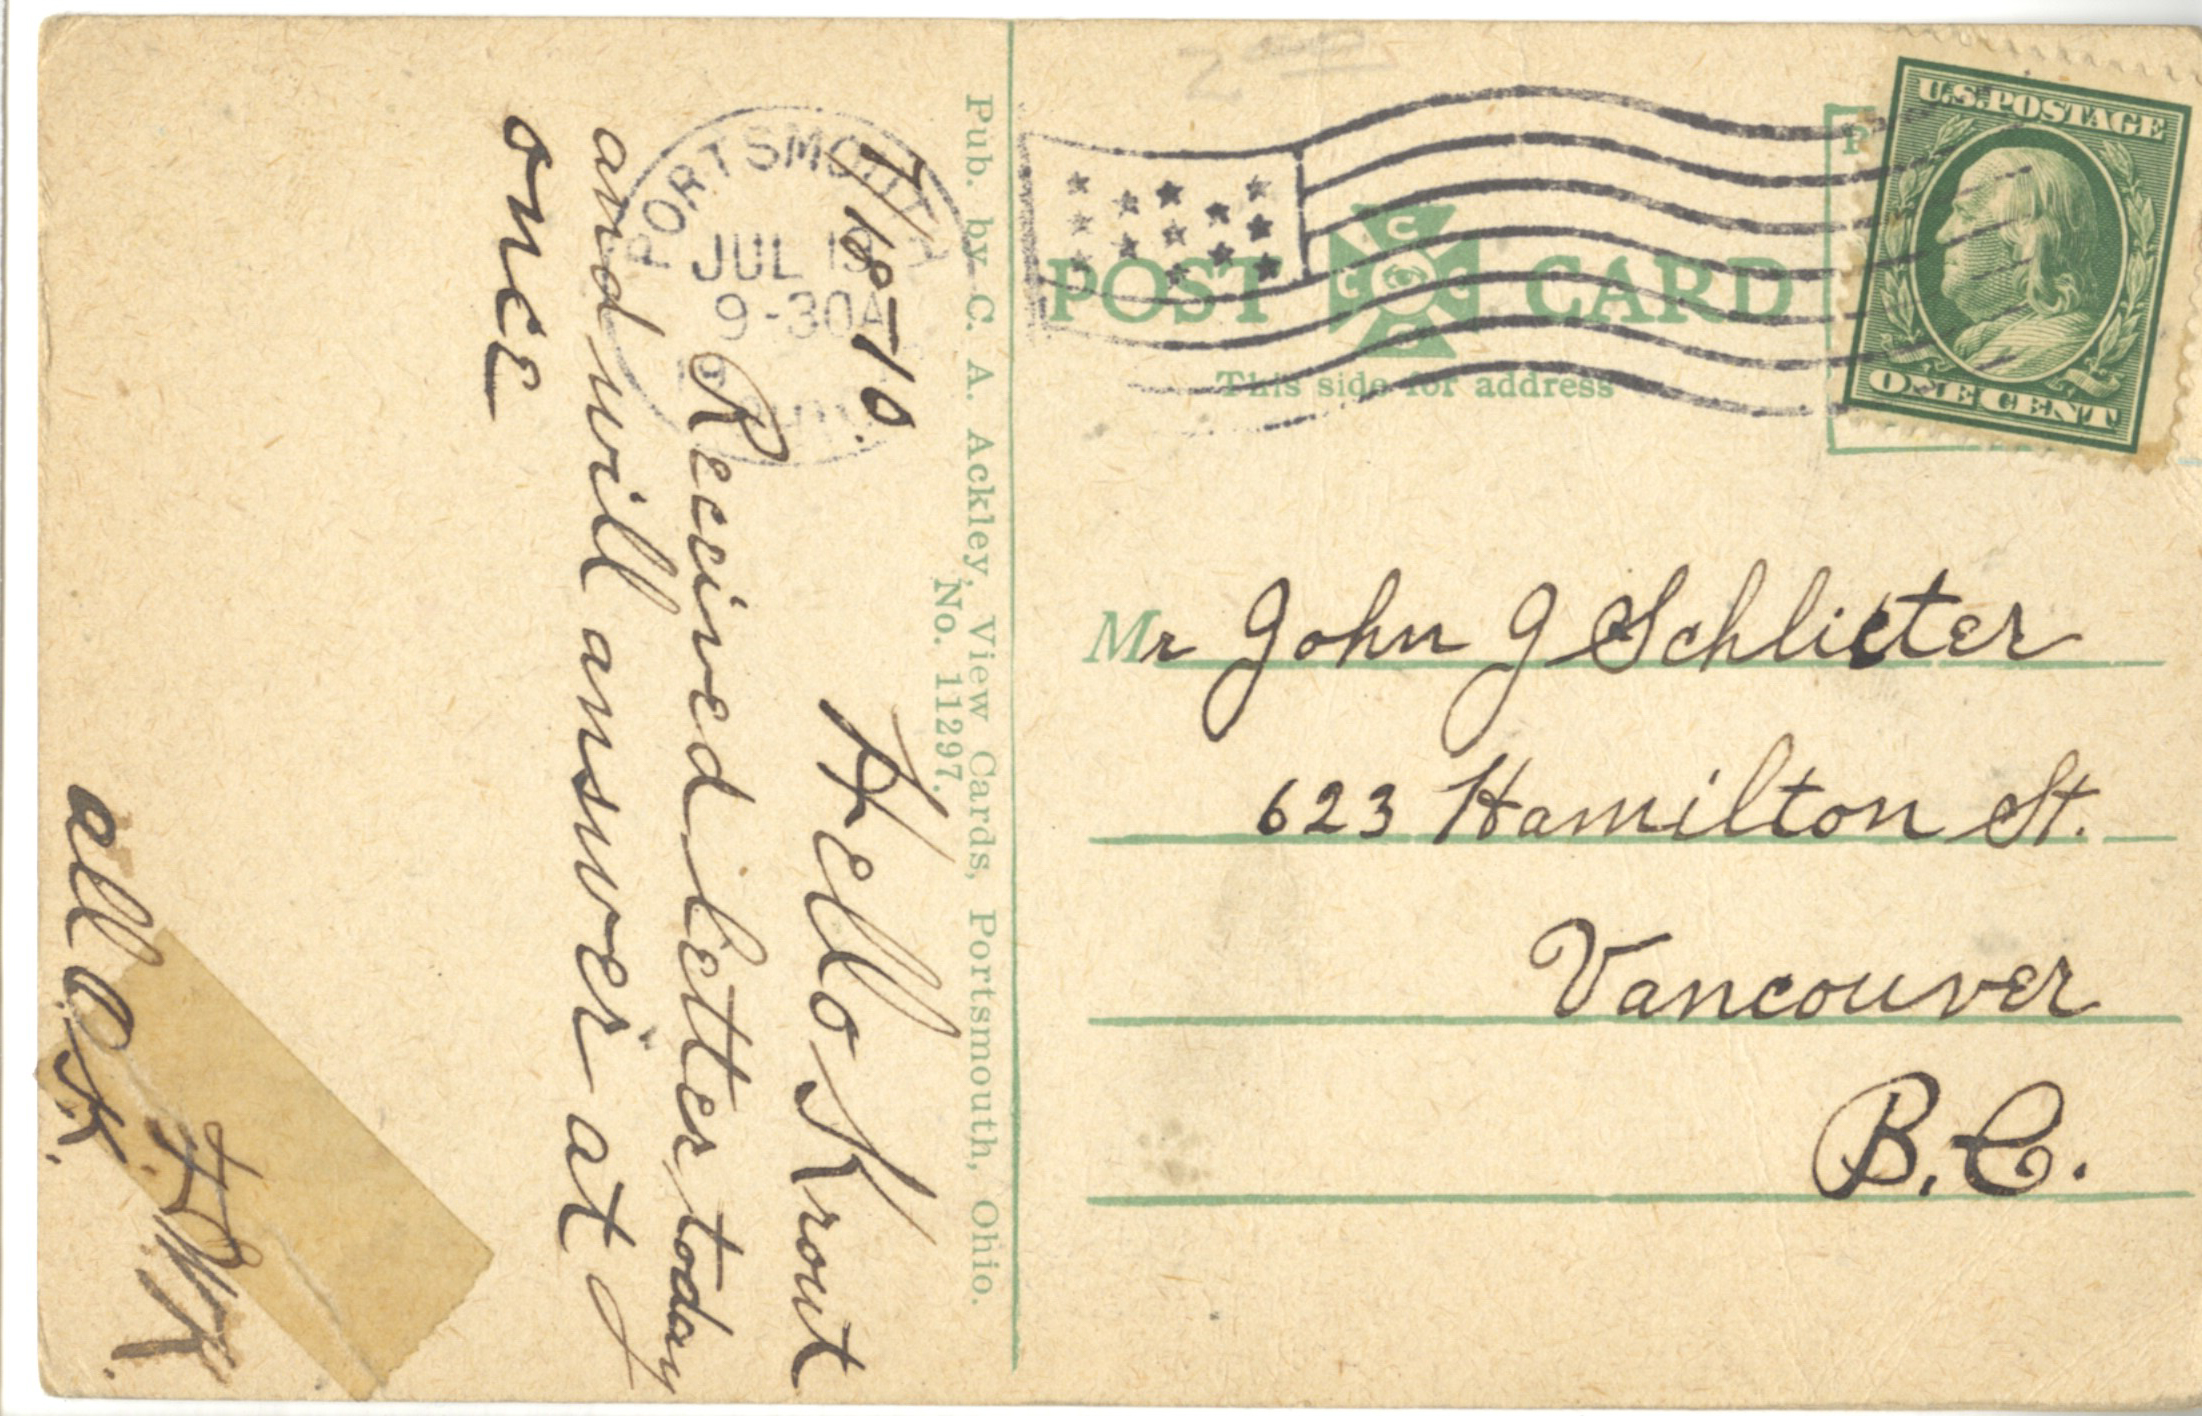 7/18-10.
Hello Krout
Received letter today
and will answer at
once
F.W.K.
all O.K.
PORTSMOUTH
JUL 19
9-30A
OHIO
Pub. by C. A. Ackley, View Cards, Portsmouth, Ohio.
No. 11297.
POST CARD
C C C C
This side for address
U.S. POSTAGE
ONE CENT
P
Mr John J Schlieter
623 Hamilton St.
Vancouver
B.C.